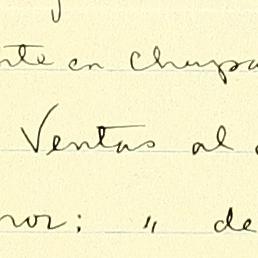 nte en chupa
Ventas al
nor; " de